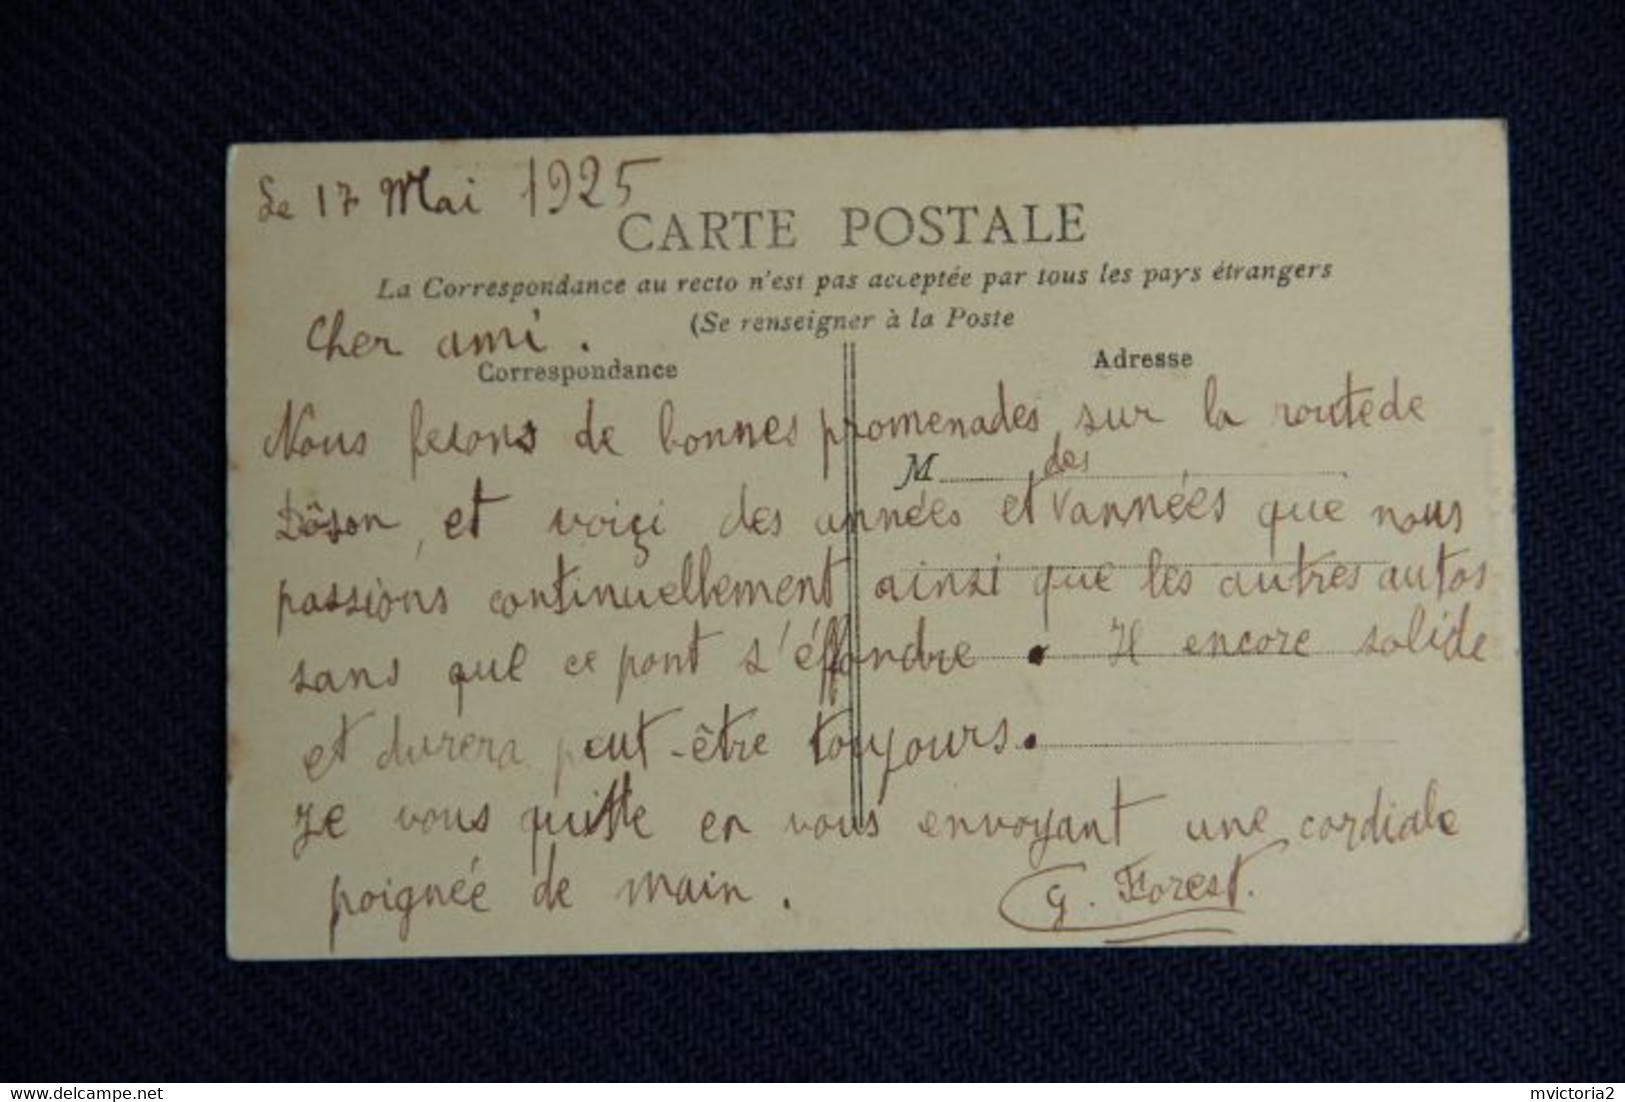 Le 17 Mai 1925
CARTE POSTALE
La Correspondance au recto n'est pas acceptée par tous les pays étrangers
(Se renseigner à la Poste
Cher ami.
Correspondance
Adresse
Nous fesons de bonnes promenades sur la route de
M
des
Dôson, et voiçi des années et années que nous
passions continuellement ainsi que les autres autos
sans que ce pont s'éffondre. Il encore solide
et durera peut-être toujours.
Je vous quitte en vous envoyant une cordiale
poignée de main.
G. Forest.
mvictoria2